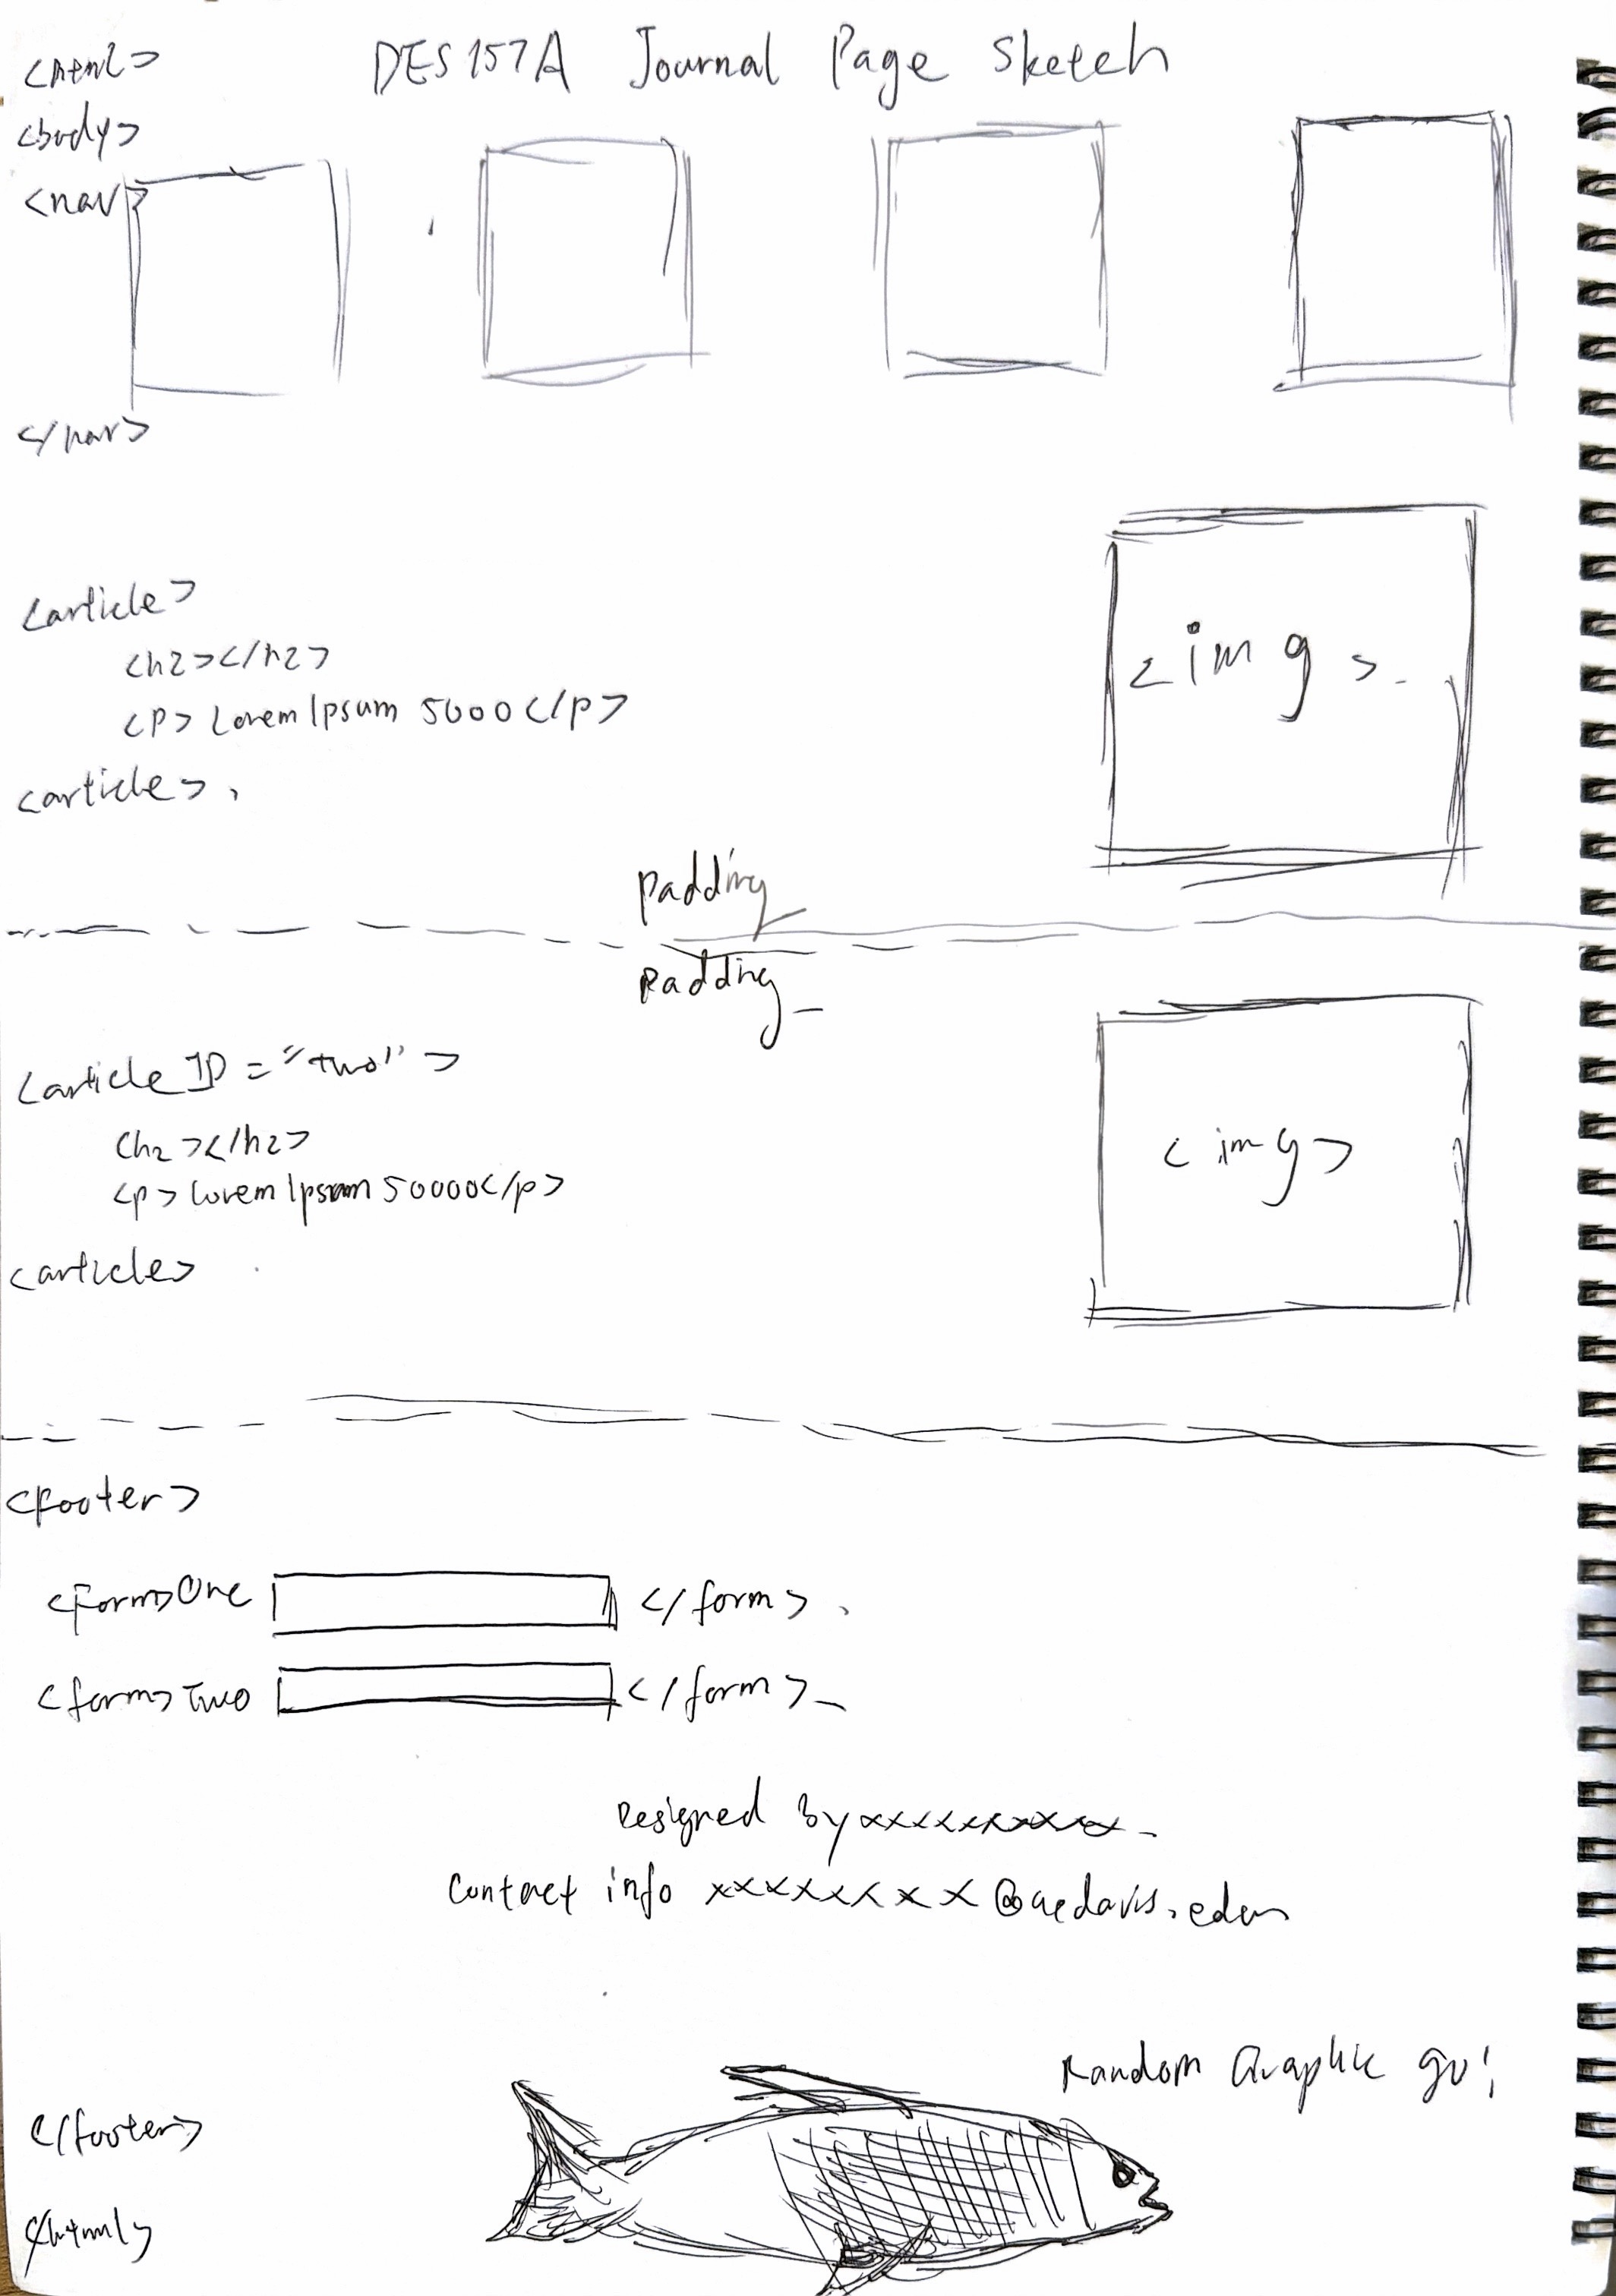 <html>
DES157A Journal Page Sketch
<body>
<nav>
</nav>
<article>
<h2></h2>
<p> Lorem Ipsum 5000</p>
<article>
<img>
padding
padding
<article ID = "two">
<h2></h2>
<p> Lorem Ipsum 50000</p>
<article>
<img>
<footer>
<form> One </form>
<form> Two </form>
Designed By xxxxxxxxxxx
Contact info xxxxxxxxx @ucdavis.edu
Random Graphic go!
</footer>
</html>